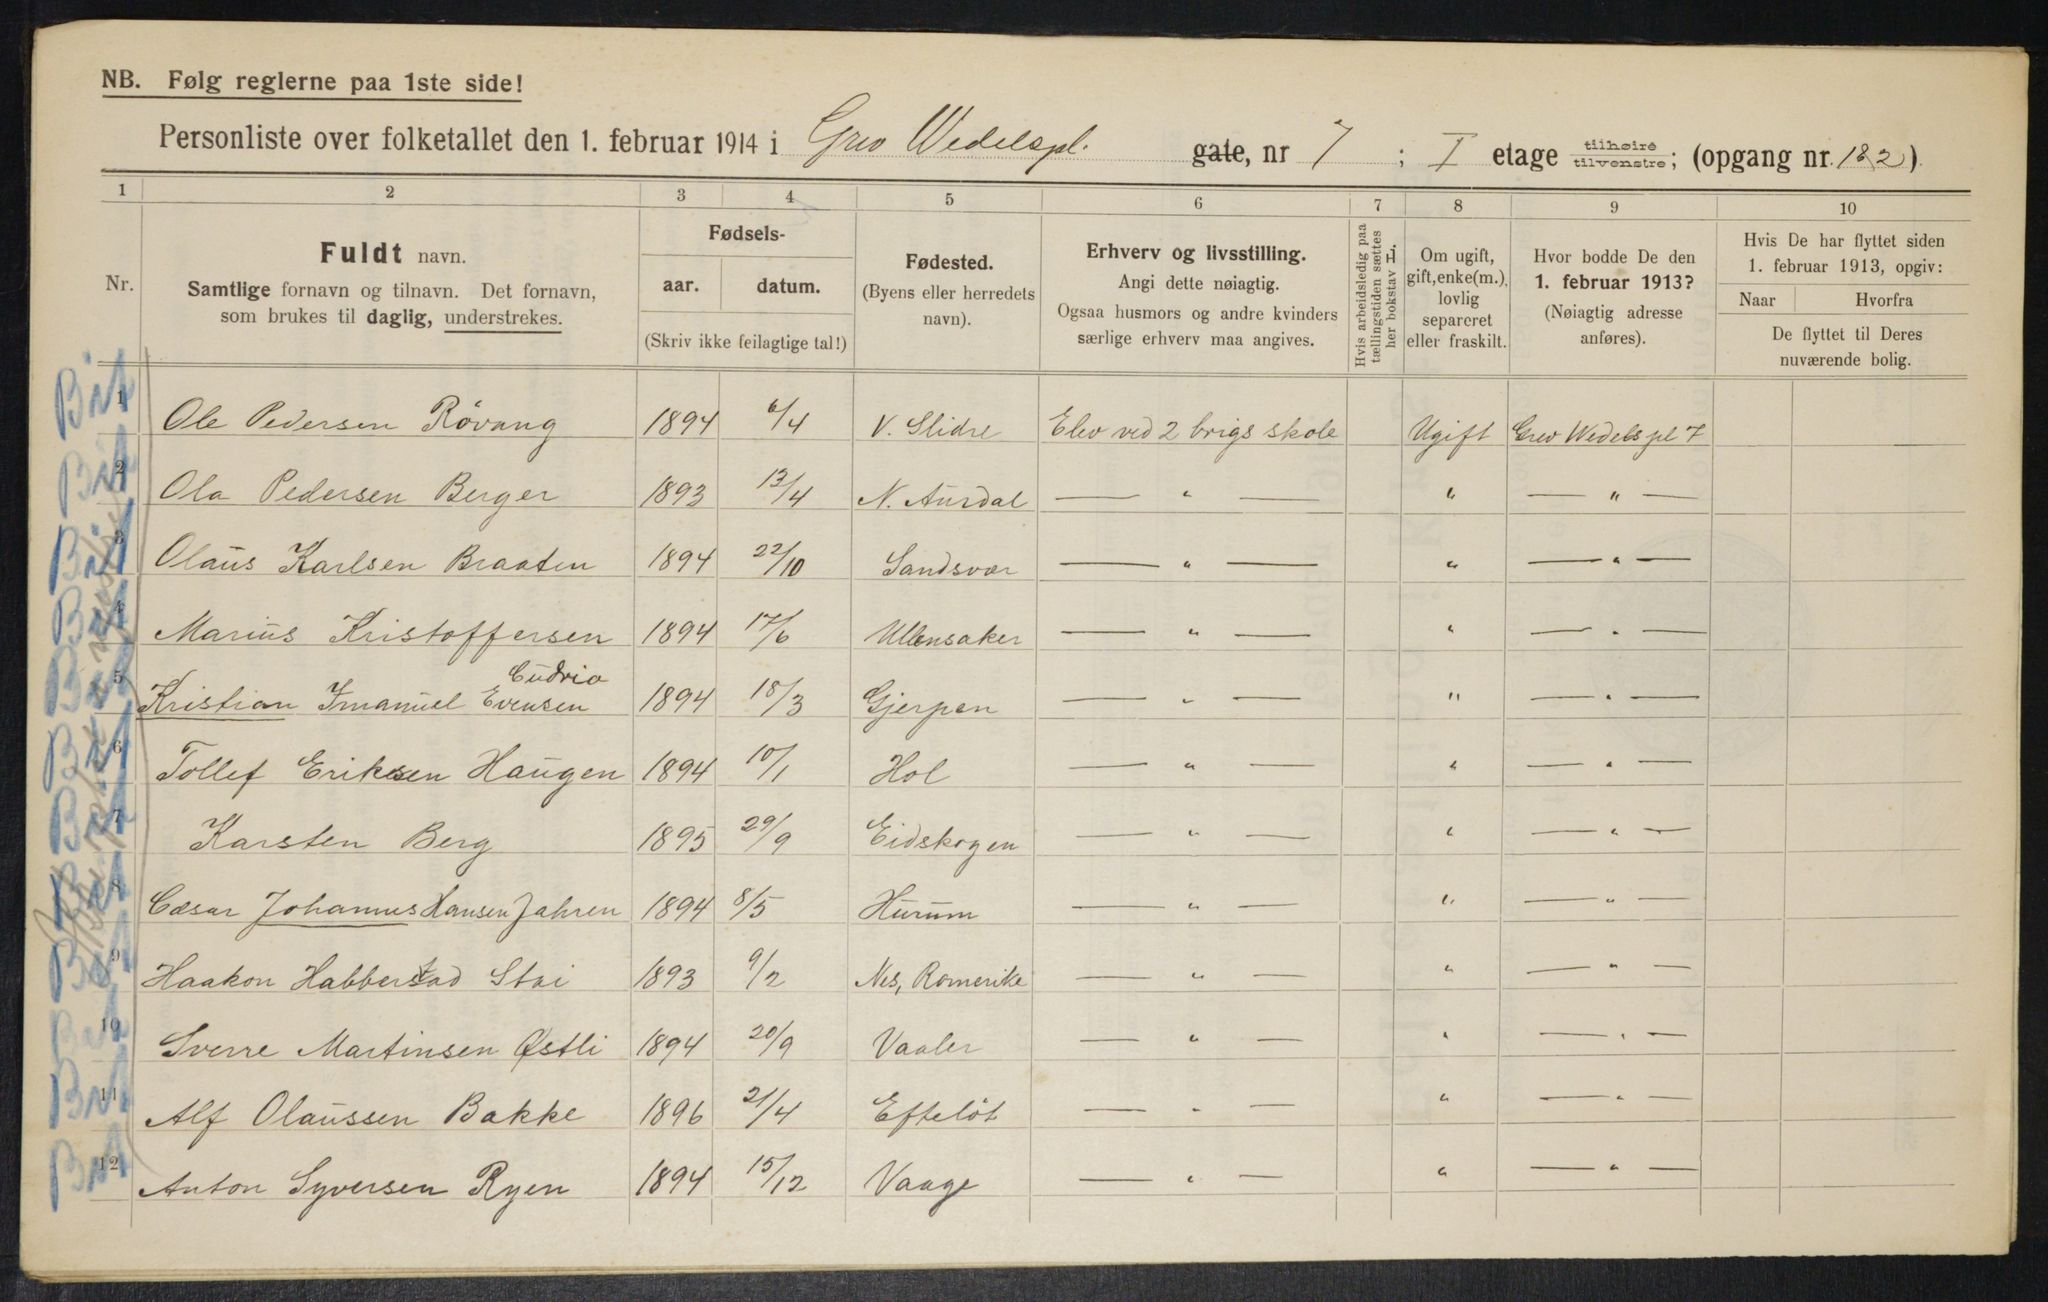 NB. Følg reglerne paa 1ste side!
Personliste over folketallet den 1. februar 1914 i Grev Wedelspl. gate, nr 7 ; I etage tilhøire tilvenstre; (opgang nr. 1&2).
1 2 3 4 5 6 7 8 9 10
Nr.
Fuldt navn.
Samtlige fornavn og tilnavn. Det fornavn,
som brukes til daglig, understrekes.
Fødsels-
aar. datum.
(Skriv ikke feilagtige tal!)
Fødested.
(Byens eller herredets
navn).
Erhverv og livsstilling.
Angi dette nøiagtig.
Ogsaa husmors og andre kvinders
særlige erhverv maa angives.
Hvis arbeidsledig paa
tællingstiden sættes
her bokstav L.
Om ugift,
gift, enke(m.),
lovlig
separeret
eller fraskilt.
Hvor bodde De den
1. februar 1913?
(Nøiagtig adresse
anføres).
Hvis De har flyttet siden
1. februar 1913, opgiv:
Naar Hvorfra
De flyttet til Deres
nuværende bolig.
1 Ole Pedersen Røvang 1894 6/4 V. Slidre Elev ved 2 brigs skole Ugift Grev Wedels pl 7
2 Ola Pedersen Berger 1893 13/4 N. Aurdal — " — " — " —
3 Olaus Karlsen Braaten 1894 22/10 Sandsvær — " — " — " —
4 Marius Kristoffersen 1894 17/6 Ullensaker — " — " — " —
Gudrio
5 Kristian Imanuel Evensen 1894 18/3 Gjerpen — " — " — " —
6 Tollef Eriksen Haugen 1894 10/1 Hol — " — " — " —
7 Karsten Berg 1895 29/9 Eidskogen — " — " — " —
8 Cæsar Johannus Hansen Jahren 1894 8/5 Hurum — " — " — " —
9 Haakon Habberstad Stai 1893 9/2 Nes, Romerike — " — " — " —
10 Sverre Martinsen Østli 1894 20/9 Vaaler — " — " — " —
11 Alf Olaussen Bakke 1896 21/4 Efteløt — " — " — " —
12 Anton Syversen Ryen 1894 15/12 Vaage — " — " — " —